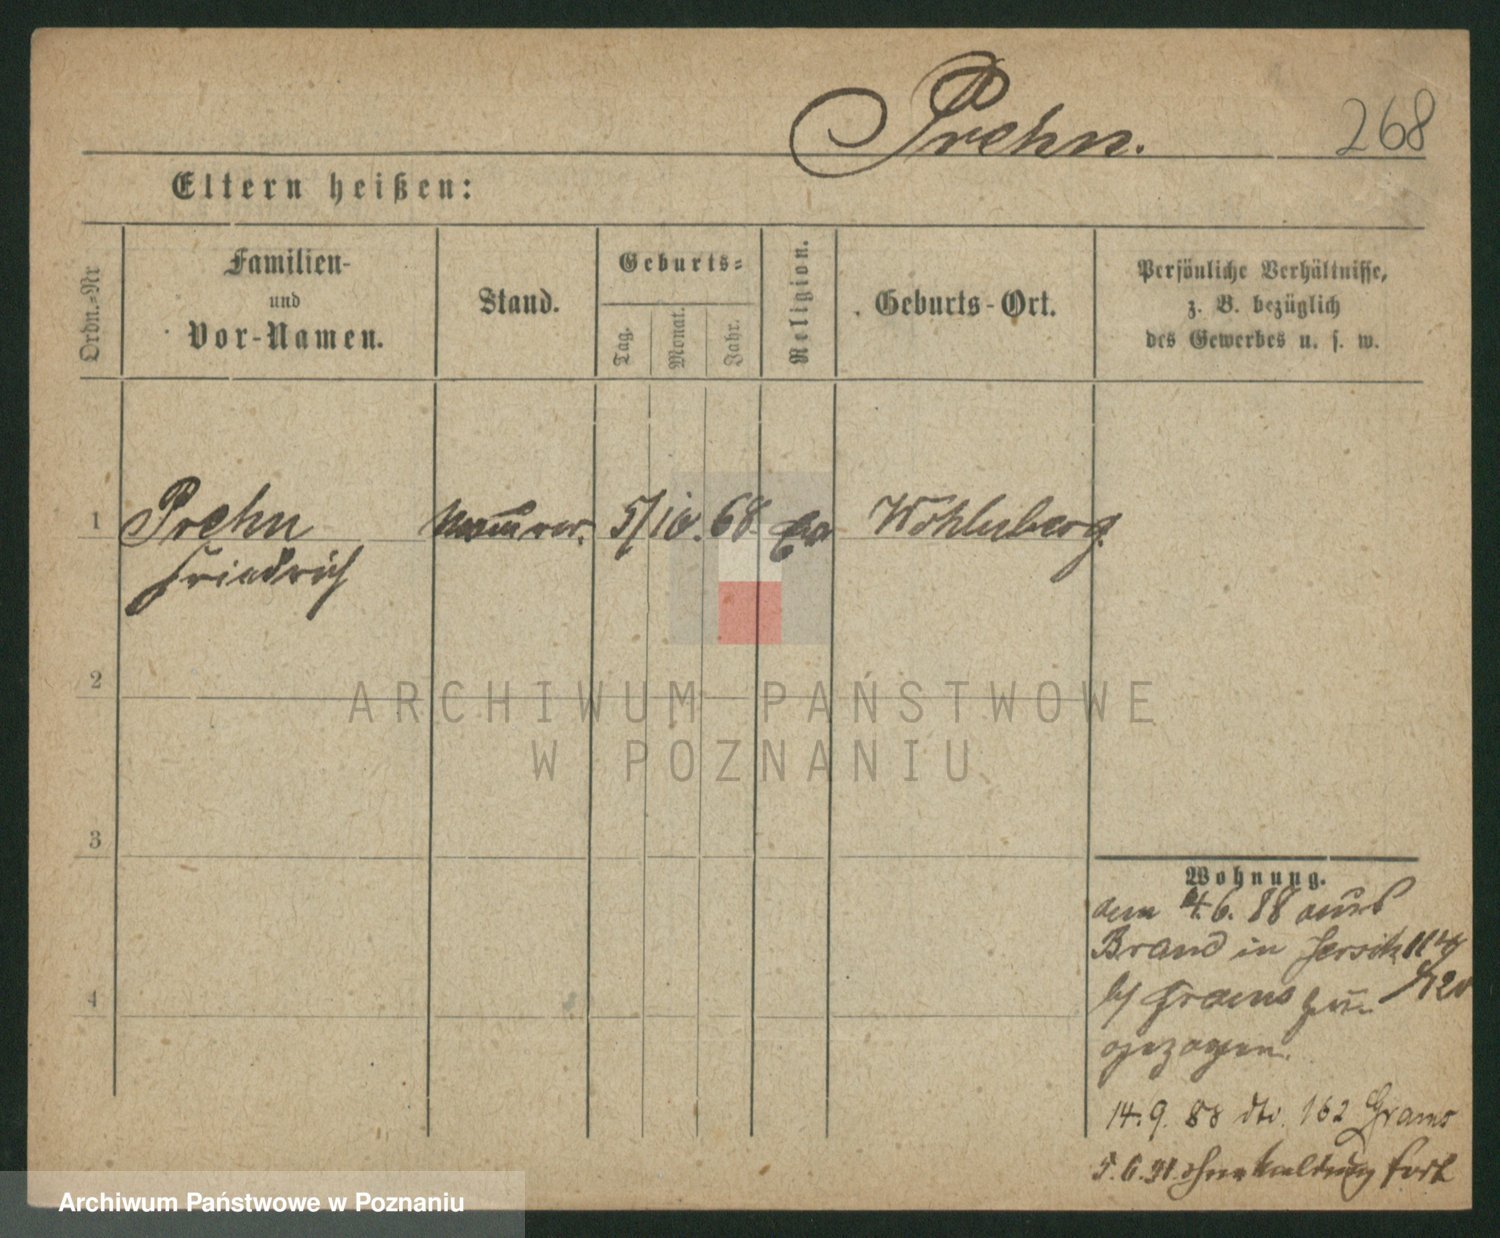 Prehn.
268
Eltern heißen:
Ordn.=Nr
Familien-
und
Vor-Namen.
Stand.
Geburts=
Tag.
Monat.
Jahr.
Religion.
Geburts-Ort.
Persönliche Verhältnisse,
z. B. bezüglich
des Gewerbes u. s. w.
1
Prehn
Friedrich
Maurer.
5/10. 68.
Wohlenberg.
2
ARCHIWUM PAŃSTWOWE
W POZNANIU
3
4
Wohnung.
4.6.88
Brand in Jersitz 114
b/ Grams
gezogen.
14.9.88 dto. 162 Grams
5.6.91. ohne Meldung fort
Archiwum Państwowe w Poznaniu